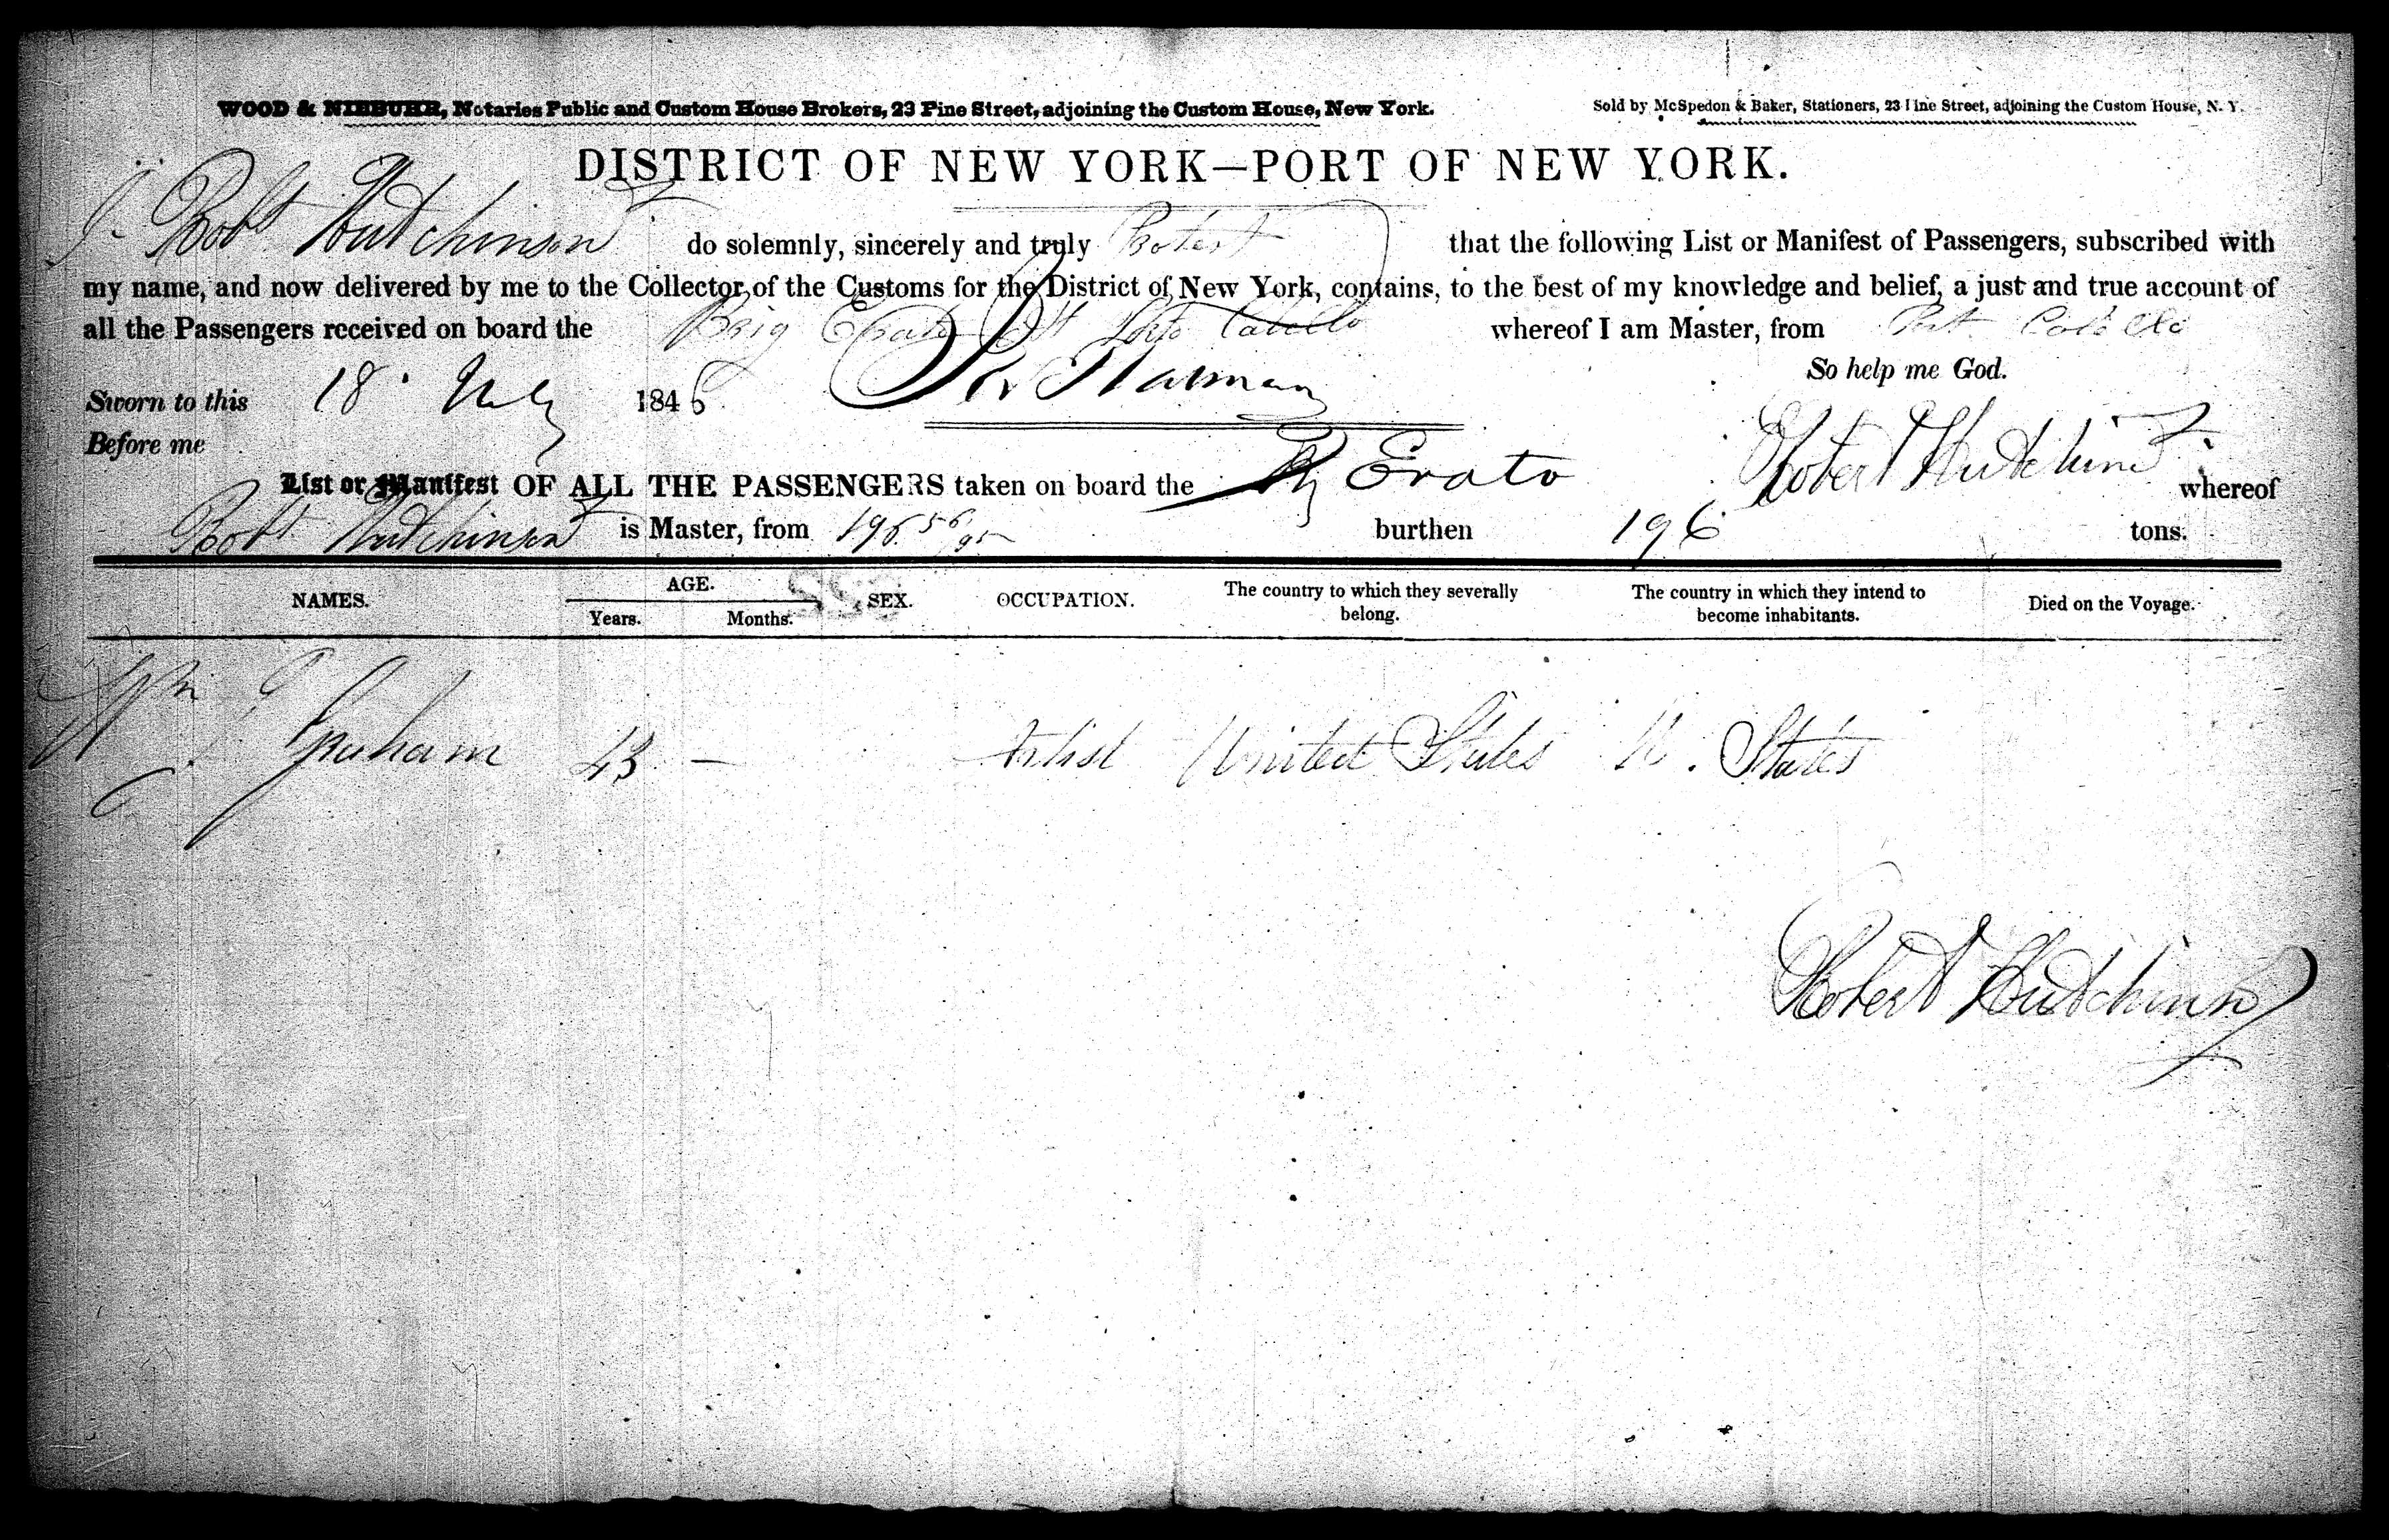 WOOD & NIEBUHR, Notaries Public and Custom House Brokers, 23 Pine Street, adjoining the Custom House, New York.
Sold by McSpedon & Baker, Stationers, 23 Pine Street, adjoining the Custom House, N. Y.
DISTRICT OF NEW YORK—PORT OF NEW YORK.
I Robt Hutchinson do solemnly, sincerely and truly that the following List or Manifest of Passengers, subscribed with
my name, and now delivered by me to the Collector of the Customs for the District of New York, contains, to the best of my knowledge and belief, a just and true account of
all the Passengers received on board the Brig Erato Cabello whereof I am Master, from Cabello
So help me God.
Sworn to this 18 July 1846
Before me
Robert Hutchinson
List or Manifest OF ALL THE PASSENGERS taken on board the Erato whereof
Robt Hutchinson is Master, from 196 56/95 burthen 196 tons.
NAMES. AGE. SEX. OCCUPATION. The country to which they severally belong. The country in which they intend to become inhabitants. Died on the Voyage.
Years. Months.
Wm Graham 43 — Artist United States U. States
Robert Hutchinson